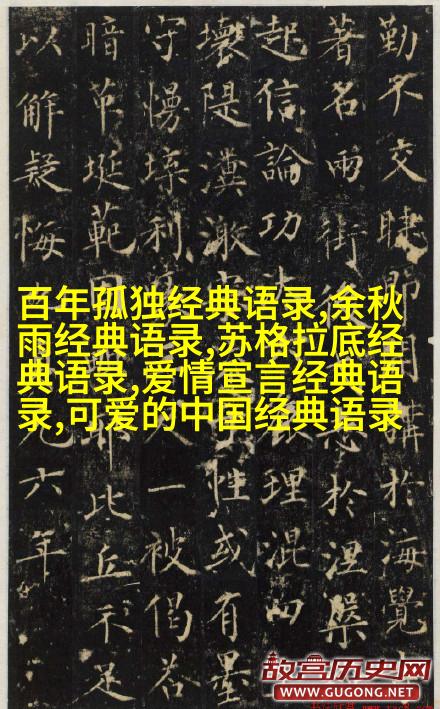 勤不交睫即用講於海覺
著名兩街於涅槃
起信論功理混四
壞隄潰性或有墨
守慢利一被偈若
暗埏範比丘不足
以解疑悔六年
百年孤独经典语录,余秋
雨经典语录,苏格拉底经
典语录,爱情宣言经典语
录,可爱的中国经典语录
故宫历史网
WWW.GUGONG.NET